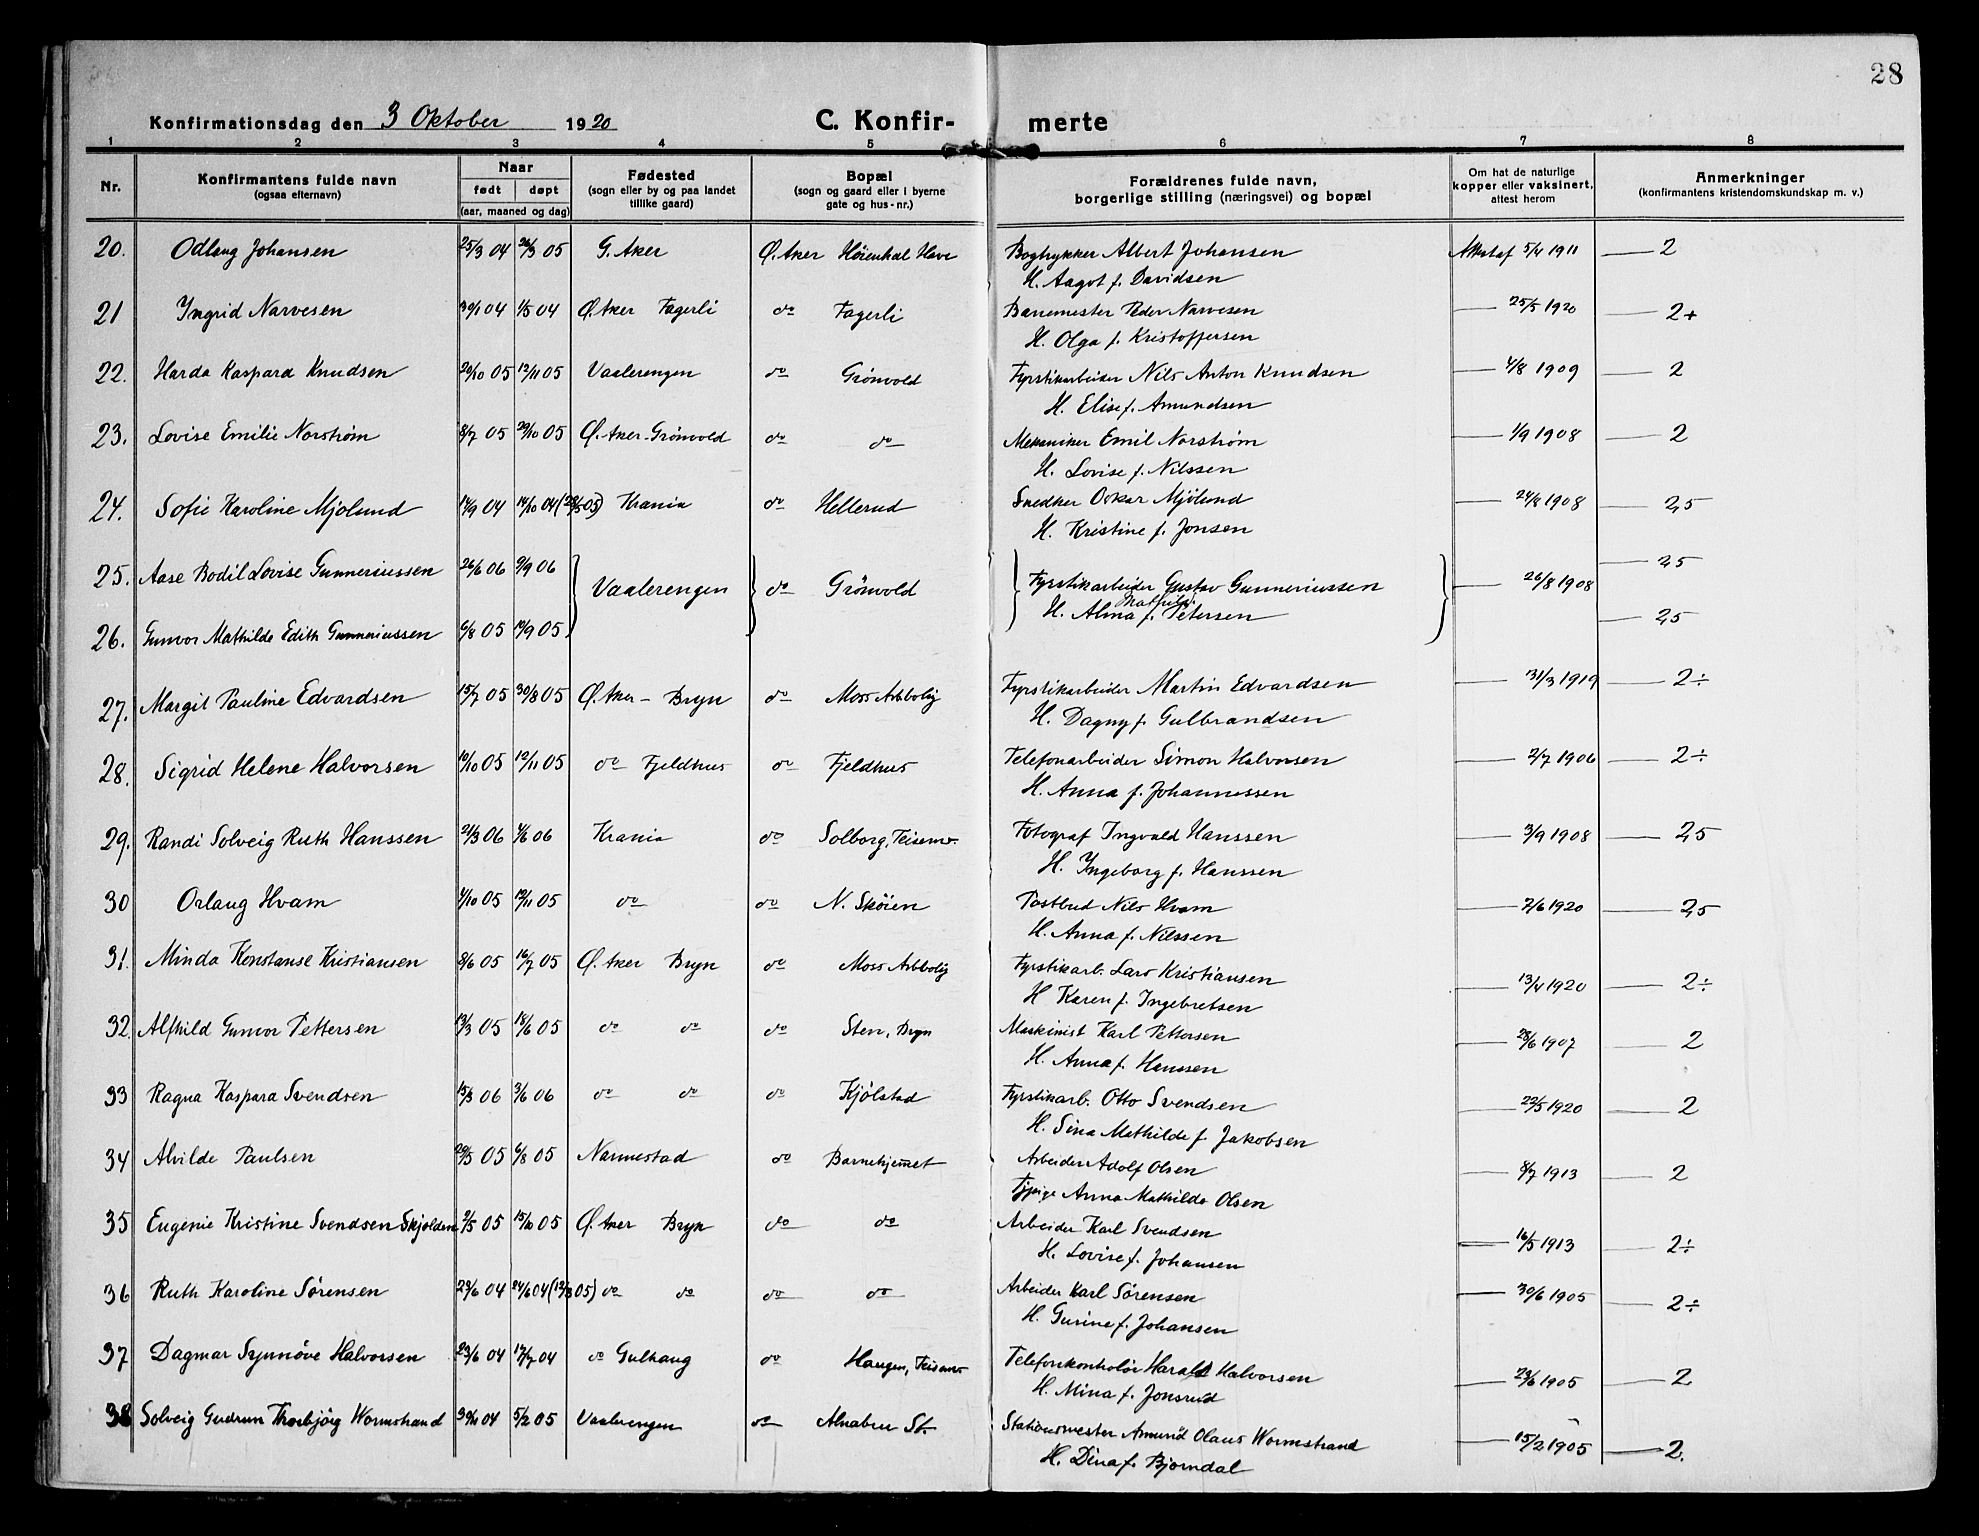 28
Konfirmationsdag den 3 Oktober 1920 C. Konfir- merte
1 2 3 4 5 6 7 8
Nr. Konfirmantens fulde navn (ogsaa efternavn) Naar født døpt (aar, maaned og dag) Fødested (sogn eller by og paa landet tillike gaard) Bopæl (sogn og gaard eller i byerne gate og hus-nr.) Forældrenes fulde navn, borgerlige stilling (næringsvei) og bopæl Om hat de naturlige kopper eller vaksinert, attest herom Anmerkninger (konfirmantens kristendomskundskap m. v.)
20. Odlaug Johansen 25/3 04 26/3 05 G. Aker Ø. Aker Høienhal Have Bogtrykker Albert Johansen Attestaf 5/4 1911 — 2
H. Aagot f. Davidsen
21 Ingrid Narvesen 30/1 04 1/5 04 Ø. Aker Fagerli do Fagerli Banemester Peder Narvesen — 25/5 1920 — 2+
H. Olga f. Kristoffersen
22. Harda Kaspara Knudsen 20/10 05 12/11 05 Vaalerengen do Grönvold Fyrstikarbeider Nils Anton Knudsen — 4/8 1909 — 2
H. Elise f. Amundsen
23. Lovise Emilie Norstrøm 8/7 05 29/10 05 Ø. Aker-Grönvold do do Mekaniker Emil Norstrøm — 1/9 1908 — 2
H. Lovise f. Nilssen
24. Sofie Karoline Mjölund 14/9 04 14/10 04 (28/5 05) Krania do Hellerud Snedker Oskar Mjölund — 24/8 1908 — 2,5
H. Kristine f. Jonsen
25. Aase Bodil Lovise Gunneriussen 26/6 06 9/9 06 Vaalerengen do Grönvold Fyrstikarbeider Gustav Gunneriussen — 26/8 1908 — 2,5
H. Alma Mathilde f. Petersen
26. Gunvor Mathilde Edith Gunneriussen 6/8 05 10/9 05 — 2,5
27. Margit Pauline Edvardsen 15/7 05 30/8 05 Ø. Aker – Bryn do Moss Arbbolig Fyrstikarbeider Martin Edvardsen — 31/3 1919 — 2÷
H. Dagny f. Gulbrandsen
28. Sigrid Helene Halvorsen 10/10 05 12/11 05 do Fjeldhus do Fjeldhus Telefonarbeider Simon Halvorsen — 2/7 1906 — 2÷
H. Anna f. Johannessen
29. Randi Solveig Ruth Hanssen 21/3 06 4/6 06 Krania do Solborg, Teisenv. Fotograf Ingvald Hanssen — 3/9 1908 — 2,5
H. Ingeborg f. Hanssen
30 Orlaug Hvam 4/10 05 12/11 05 do do N. Skøien Postbud Nils Hvam — 2/6 1920 — 2,5
H. Anna f. Nilssen
31. Minda Konstanse Kristiansen 8/6 05 16/7 05 Ø. Aker Bryn do Moss Arbbolig Fyrstikarb. Lars Kristiansen — 13/4 1920 — 2÷
H Karen f. Ingebretsen
32. Alfhild Gunvor Pettersen 13/3 05 18/6 05 do do do Sten, Bryn Maskinist Karl Pettersen — 28/6 1907 — 2
H. Anna f. Hanssen
33 Ragna Kaspara Svendsen 15/3 06 3/6 06 do do do Kjölstad Fyrstikarb. Otto Svendsen — 22/5 1920 — 2
H. Sina Mathilde f. Jakobsen
34 Alvilde Paulsen 29/5 05 6/8 05 Nannestad do Barnehjemet Arbeider Adolf Olsen — 8/7 1913 — 2
Tjpige Anna Mathilde Olsen
35 Eugenie Kristine Svendsen Skjolden 2/5 05 15/10 05 Ø. Aker Bryn do do Arbeider Karl Svendsen — 16/5 1913 — 2÷
H. Lovise f. Johansen
36 Ruth Karoline Sørensen 23/6 04 24/6 04 (12/3 05) do do do do Arbeider Karl Sørensen — 30/6 1905 — 2÷
H. Gurine f. Johansen
37 Dagmar Synnöve Halvorsen 23/6 04 17/7 04 do Gulhaug do Haugen, Teisenv Telefonkontrolør Harald Halvorsen — 23/6 1905 — 2
H. Mina f. Jonsrud
38 Solveig Gudrun Thorbjörg Wormstrand 30/10 04 5/2 05 Vaalerengen do Alnabru St. Stationsmester Amund Olaus Wormstrand — 15/2 1905 — 2.
H. Dina f. Bjørndal